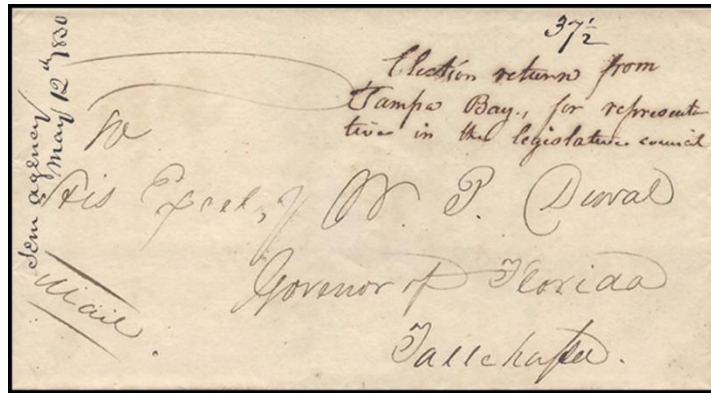 Sem agency
May 12th 1830
37½
Election return from
Tampa Bay, for representa
tive in the legislative council
To
His Excely W. P. Duval
Govenor of Florida
Tallehassee.
Mail